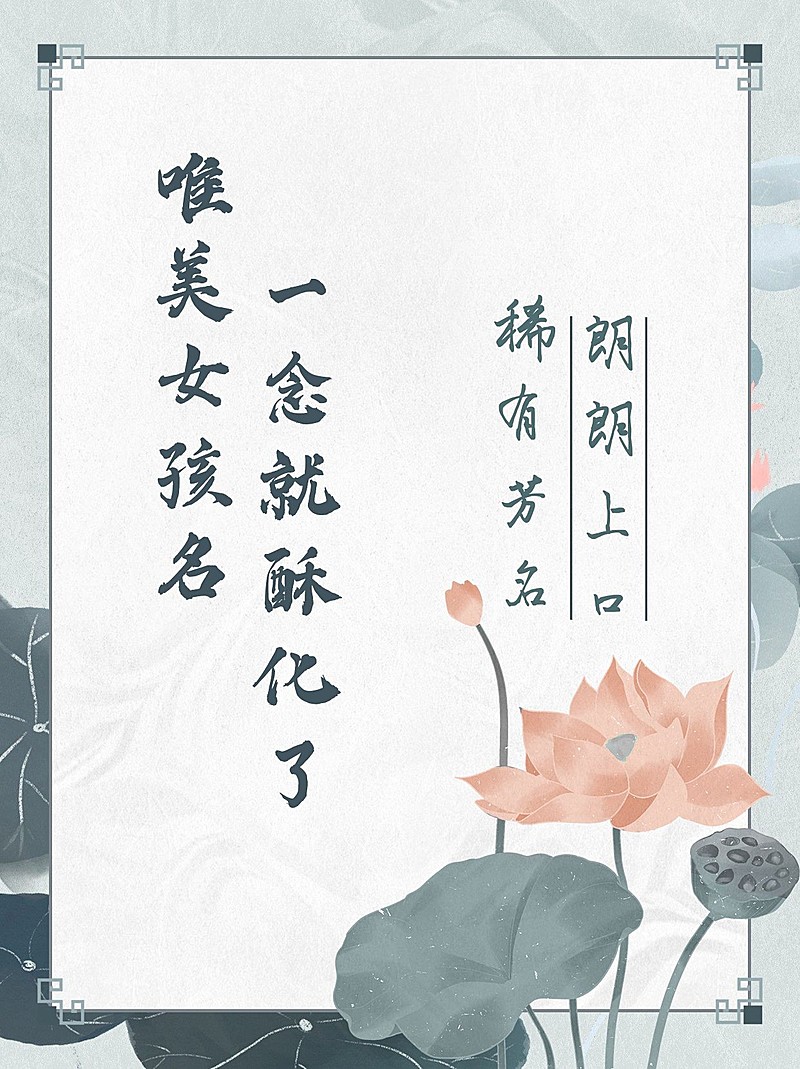 朗朗上口
稀有芳名
一念就酥化了
唯美女孩名